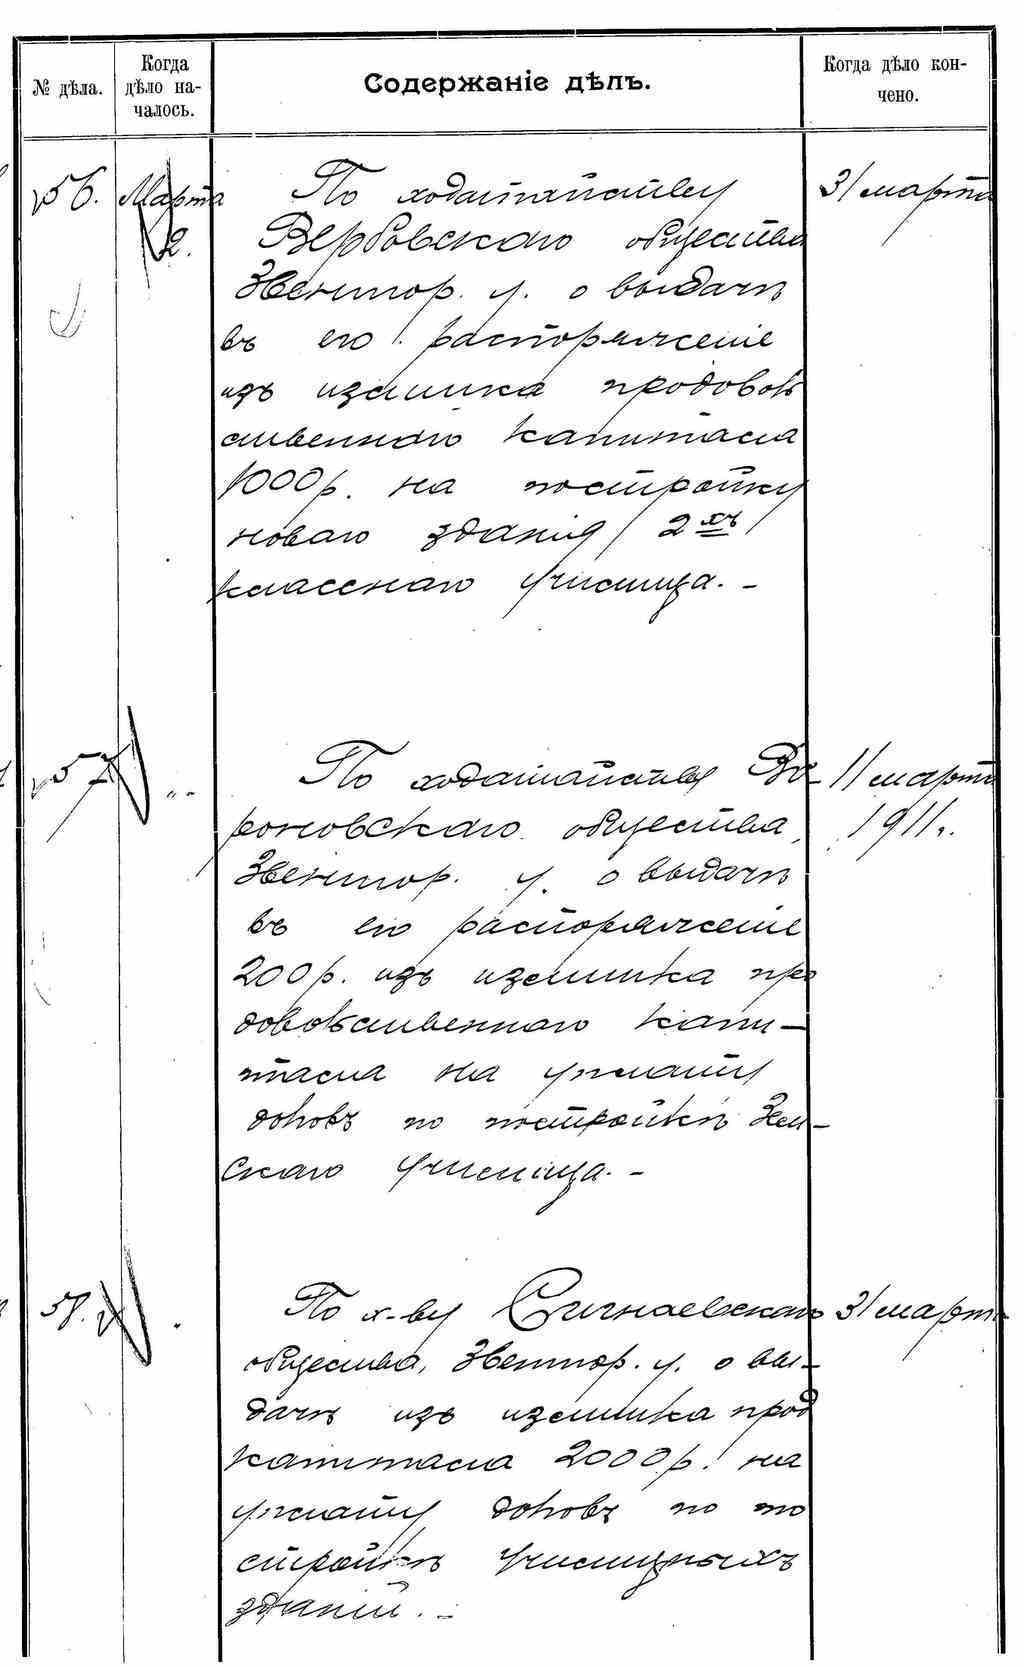 № дѣла.
Когда
дѣло на-
чалось.
Содержаніе дѣлъ.
Когда дѣло кон-
чено.
56.
Марта
2.
По ходатайству
Вербовскаго общества
Звенигор. у. о выдачѣ
въ его распоряженіе
изъ излишка продоволь
ственнаго капитала
1000 р. на постройку
новаго зданія 2хъ
класснаго училища. -
31 марта
57
" "
По ходатайству Во-
роновскаго общества,
Звенигор. у. о выдачѣ
въ его распоряженіе
200 р. изъ излишка про
довольственнаго капи-
тала на уплату
долговъ по постройкѣ Зем-
скаго училища. -
11 марта
1911 г.
58.
По х-ву
общества, Звенигор. у. о вы-
дачѣ изъ излишка прод
капитала 2000 р. на
уплату долговъ по по
стройкѣ училищныхъ
зданій. -
31 марта